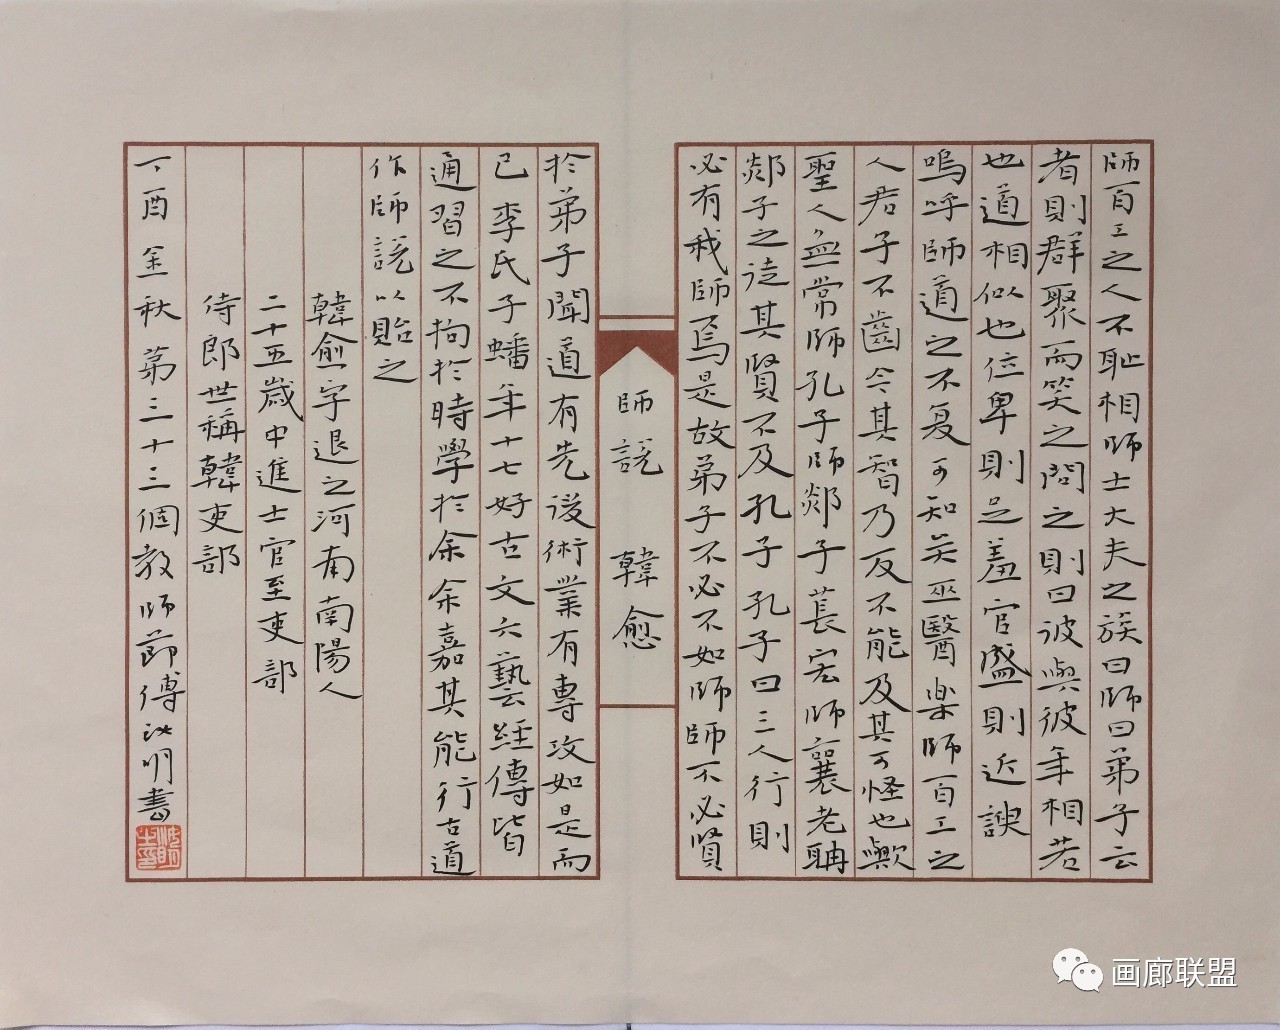 師百工之人不恥相師士大夫之族曰師曰弟子云
者則群聚而笑之問之則曰彼與彼年相若
也道相似也位卑則足羞官盛則近諛
嗚呼師道之不复可知矣巫醫楽師百工之
人君子不齒今其智乃反不能及其可怪也歟
聖人無常師孔子師郯子萇宏師襄老聃
郯子之徒其賢不及孔子孔子曰三人行則
必有我師焉是故弟子不必不如師師不必賢
師說 韓愈
於弟子聞道有先後術業有專攻如是而
已李氏子蟠年十七好古文六藝經傳皆
通習之不拘於時學於余余嘉其能行古道
作師說以貽之
韓愈字退之河南南陽人
二十五歲中進士官至吏部
侍郎世稱韓吏部
丁酉金秋第三十三個教師節傅汝明書
画廊联盟